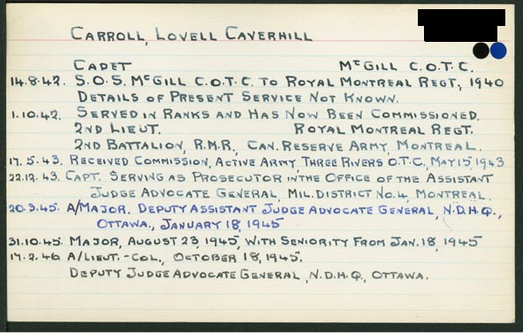 CARROLL, LOVELL CAVERHILL
CADET McGILL C.O.T.C.
14.8.42. S.O.S. McGILL C.O.T.C. TO ROYAL MONTREAL REGT, 1940
DETAILS OF PRESENT SERVICE NOT KNOWN.
1.10.42. SERVED IN RANKS AND HAS NOW BEEN COMMISSIONED.
2ND LIEUT. ROYAL MONTREAL REGT.
2ND BATTALION, R.M.R., CAN. RESERVE ARMY, MONTREAL.
17.5.43. RECEIVED COMMISSION, ACTIVE ARMY, THREE RIVERS O.T.C., MAY 15, 1943
22.12.43. CAPT. SERVING AS PROSECUTOR IN THE OFFICE OF THE ASSISTANT
JUDGE ADVOCATE GENERAL, MIL. DISTRICT No.4, MONTREAL.
20.3.45. A/MAJOR. DEPUTY ASSISTANT JUDGE ADVOCATE GENERAL, N.D.H.Q.,
OTTAWA., JANUARY 18, 1945
31.10.45. MAJOR, AUGUST 23 1945, WITH SENIORITY FROM JAN. 18, 1945
17.2.46 A/LIEUT.-COL., OCTOBER 18, 1945.
DEPUTY JUDGE ADVOCATE GENERAL, N.D.H.Q., OTTAWA.